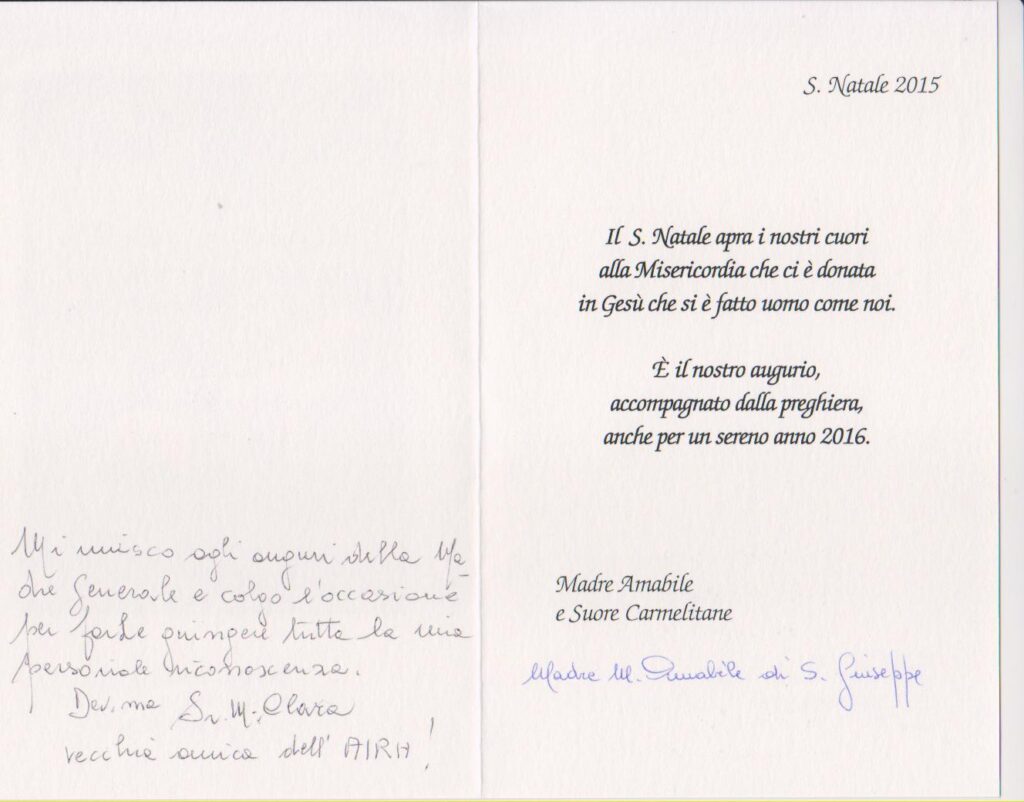 Mi unisco agli auguri della Ma-
dre Generale e colgo l'occasione
per farLe giungere tutta la mia
personale riconoscenza.
Dev.ma Sr. M. Clara
vecchia amica dell'AIRH!
S. Natale 2015
Il S. Natale apra i nostri cuori
alla Misericordia che ci è donata
in Gesù che si è fatto uomo come noi.
È il nostro augurio,
accompagnato dalla preghiera,
anche per un sereno anno 2016.
Madre Amabile
e Suore Carmelitane
Madre M. Amabile di S. Giuseppe